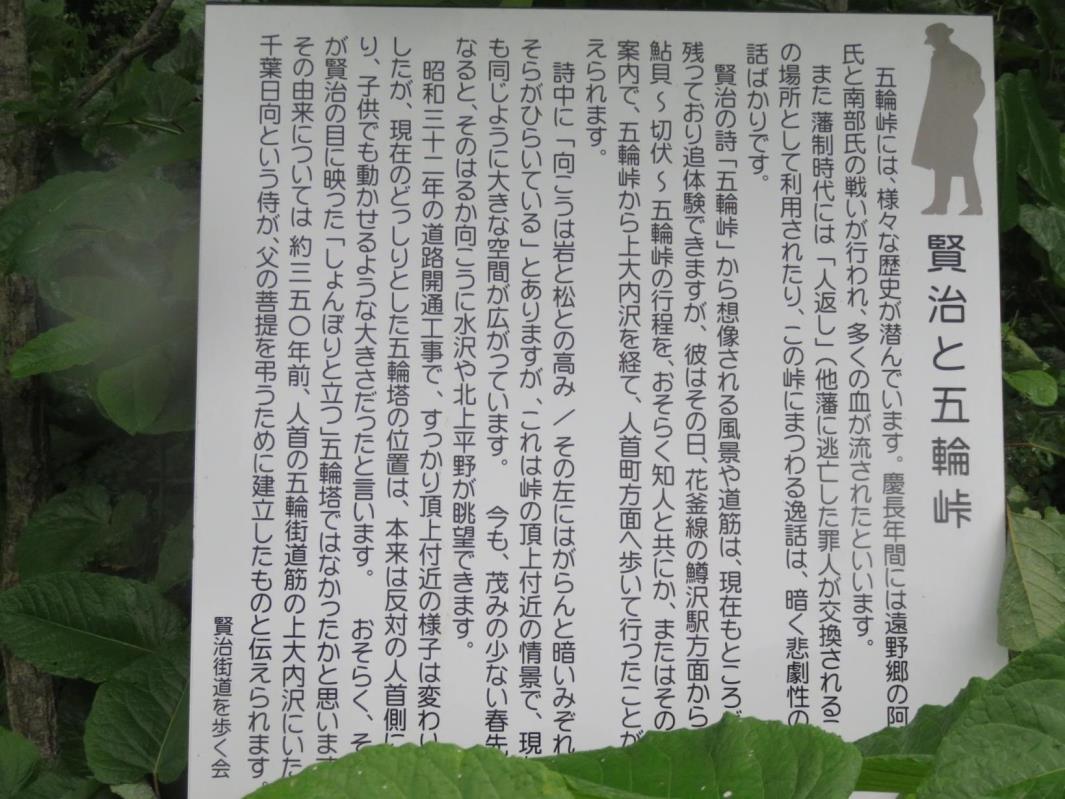 賢治と五輪峠
五輪峠には、様々な歴史が潜んでいます。慶長年間には遠野郷の阿
氏と南部氏の戦いが行われ、多くの血が流されたといいます。
また 藩制時代には「人返し」(他藩に逃亡した罪人が交換されるこ
の場所として利用されたり、この峠にまつわる逸話は、暗く悲劇性の
話ばかりです。
賢治の詩「五輪峠」から想像される風景や道筋は、現在もところ
残っており追体験できますが、彼はその日、花釜線の鱒沢駅方面から
鮎貝~切伏~五輪峠の行程を、おそらく知人と共にか、またはその
案内で、五輪峠から上大内沢を経て、人首町方面へ歩いて行ったことが
えられます。
詩中に「向こうは岩と松との高み/その左にはがらんと暗いみぞれ
そらがひらいている」とありますが、これは峠の頂上付近の情景で、現
も同じように大きな空間が広がっています。 今も、茂みの少ない春先
なると、そのはるか向こうに水沢や北上平野が眺望できます。
昭和三十二年の道路開通工事で、すっかり頂上付近の様子は変わ
したが、現在のどっしりとした五輪塔の位置は、本来は反対の人首側に
り、子供でも動かせるような大きさだったと言います。 おそらく、そ
が賢治の目に映った「しょんぼりと立つ」五輪塔ではなかったかと思います
その由来については 約三五〇年前、人首の五輪街道筋の上大内沢にいた
千葉日向という侍が、父の菩提を弔うために建立したものと伝えられます。
賢治街道を歩く会